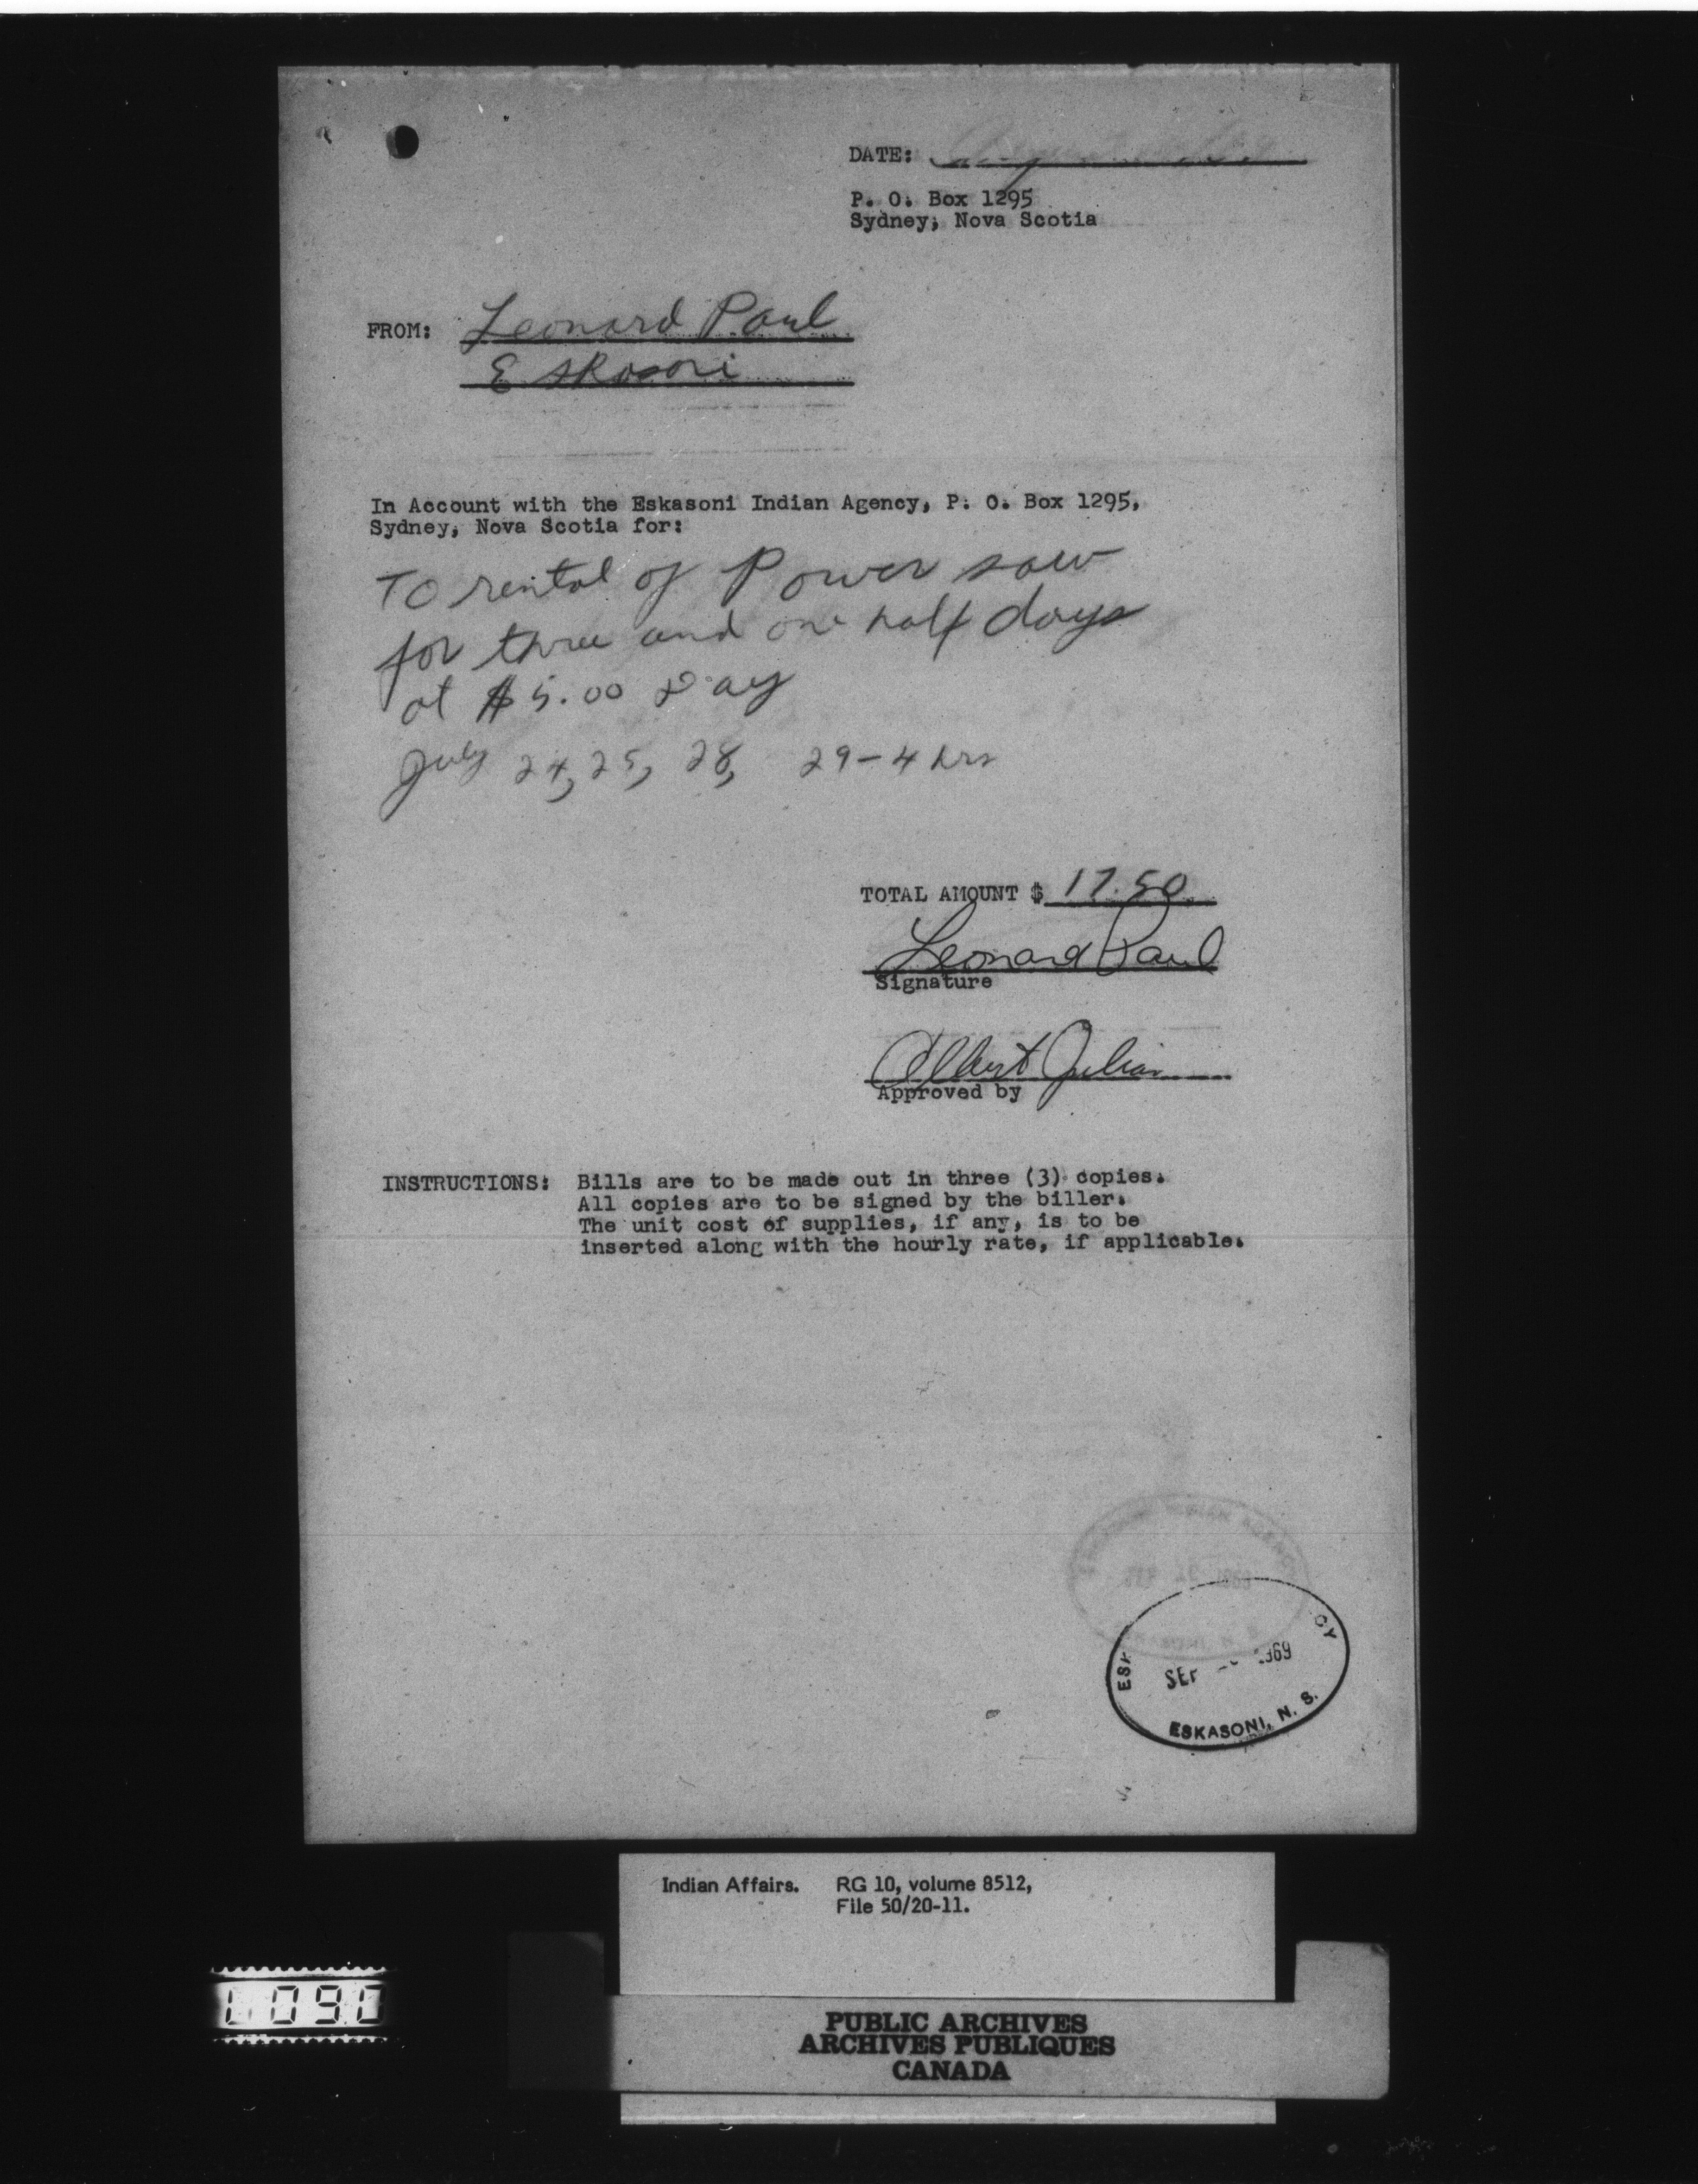 DATE:
P. O. Box 1295
Sydney, Nova Scotia
FROM: Leonard Paul
Eskasoni
In Account with the Eskasoni Indian Agency, P. O. Box 1295,
Sydney, Nova Scotia for:
To rental of Power saw
for three and one half days
at $5.00 Day
July 24, 25, 28, 29-4 hrs
TOTAL AMOUNT $ 17.50
Leonard Paul
Signature
Albert Julian
Approved by
INSTRUCTIONS: Bills are to be made out in three (3) copies.
All copies are to be signed by the biller.
The unit cost of supplies, if any, is to be
inserted along with the hourly rate, if applicable.
ESK CY
SEP 1969
ESKASONI, N. S.
Indian Affairs. RG 10, volume 8512,
File 50/20-11.
PUBLIC ARCHIVES
ARCHIVES PUBLIQUES
CANADA